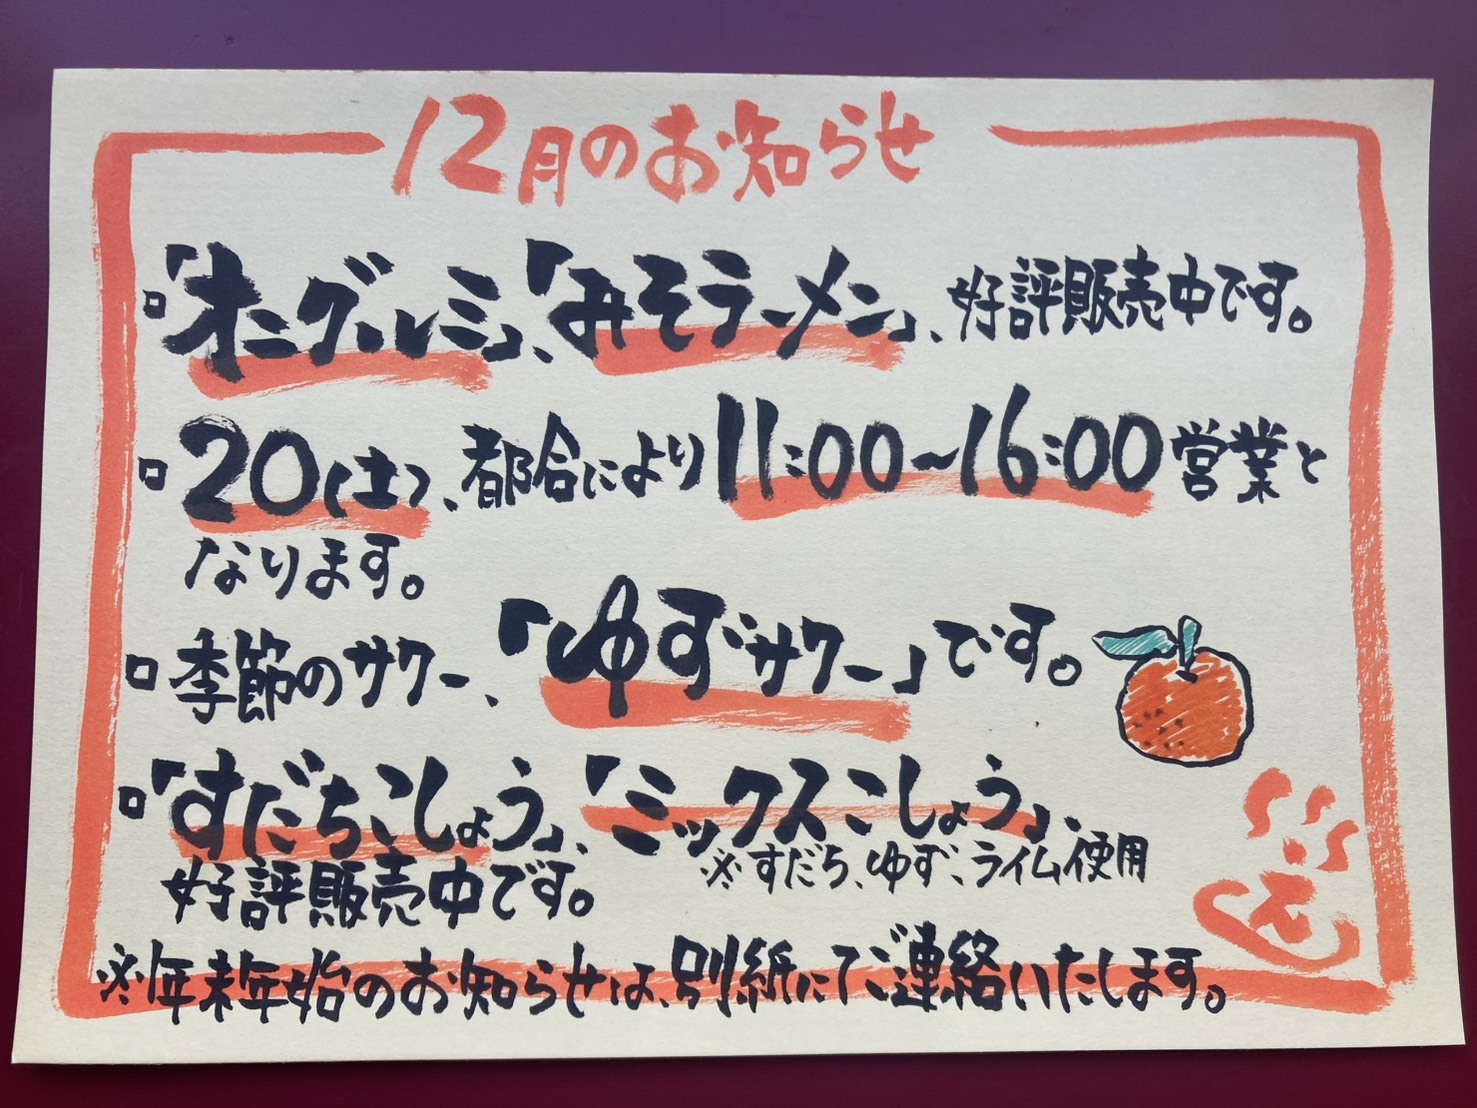 12月のお知らせ
□「オニグルミ」、「みそラーメン」、好評販売中です。
□20(土)、都合により11:00~16:00営業と
なります。
□季節のサワー、「ゆずサワー」です。
□「すだちこしょう」、「ミックスこしょう」、
※すだち、ゆず、ライム使用
好評販売中です。
※年末年始のお知らせは、別紙にてご連絡いたします。